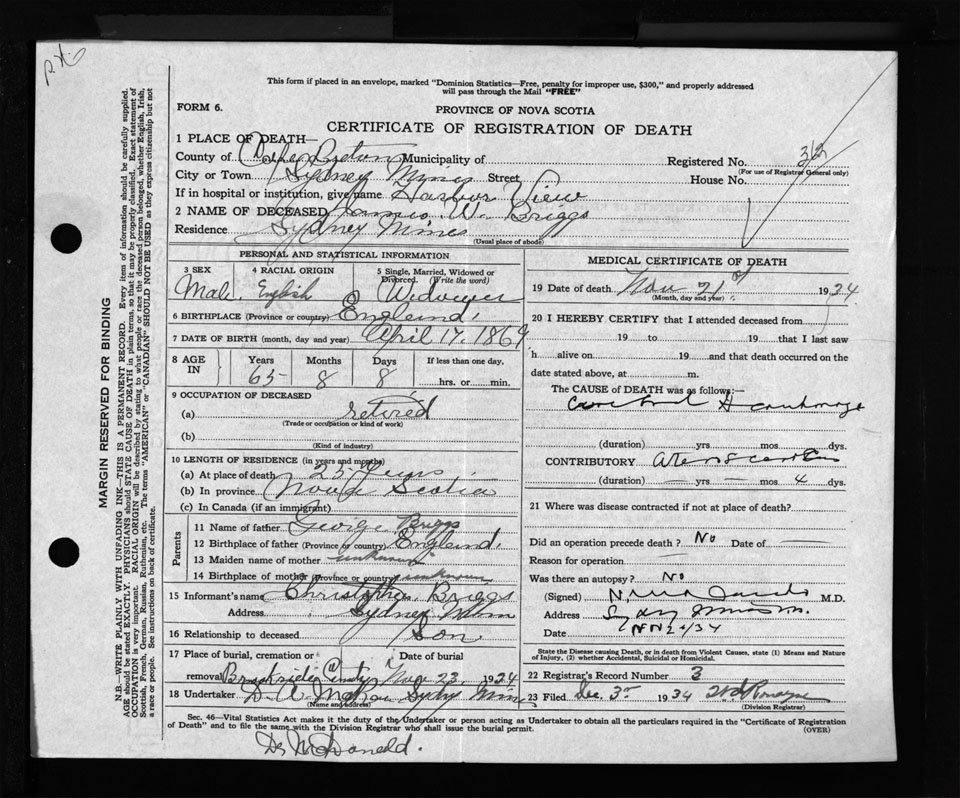 This form if placed in an envelope, marked "Dominion Statistics—Free, penalty for improper use, $300," and properly addressed
will pass through the Mail "FREE"
FORM 6.
PROVINCE OF NOVA SCOTIA
CERTIFICATE OF REGISTRATION OF DEATH
1 PLACE OF DEATH—
County of Cape Breton Municipality of
Registered No.
(For use of Registrar General only)
City or Town Sydney Mines Street House No.
If in hospital or institution, give name Harbor View
2 NAME OF DECEASED James W. Briggs
Residence Sydney Mines
(Usual place of abode)
PERSONAL AND STATISTICAL INFORMATION
3 SEX
Male.
4 RACIAL ORIGIN
English
5 Single, Married, Widowed or
Divorced. (Write the word)
Widower
6 BIRTHPLACE (Province or country) England.
7 DATE OF BIRTH (month, day and year) April 17, 1869
8 AGE IN
Years Months Days If less than one day,
65 8 8 hrs. or min.
9 OCCUPATION OF DECEASED
(a) retired
(Trade or occupation or kind of work)
(b)
(Kind of industry)
10 LENGTH OF RESIDENCE (in years and months)
(a) At place of death 25 years
(b) In province Nova Scotia
(c) In Canada (if an immigrant)
Parents
11 Name of father George Briggs
12 Birthplace of father (Province or country) England.
13 Maiden name of mother unknown
14 Birthplace of mother (Province or country) unknown
15 Informant's name Christopher Briggs
Address Sydney Mines
16 Relationship to deceased Son
17 Place of burial, cremation or Date of burial
removal Brookside Nov 23, 1934
18 Undertaker D. A. Sydney Mines
(Name and address)
MEDICAL CERTIFICATE OF DEATH
19 Date of death Nov 21st 1934
(Month, day and year)
20 I HEREBY CERTIFY that I attended deceased from
19 to 19 that I last saw
h alive on 19 and that death occurred on the
date stated above, at m.
The CAUSE of DEATH was as follows:—
Cerebral Hemorrhage
(duration) yrs. mos. dys.
CONTRIBUTORY
(duration) — yrs — mos 4 dys.
21 Where was disease contracted if not at place of death?
Did an operation precede death? No Date of —
Reason for operation —
Was there an autopsy? No
(Signed) M.D.
Address
Date
State the Disease causing Death, or in death from Violent Causes, state (1) Means and Nature
of Injury, (2) whether Accidental, Suicidal or Homicidal.
22 Registrar's Record Number 3
23 Filed Dec. 3rd 1934
(Division Registrar)
Sec. 46—Vital Statistics Act makes it the duty of the Undertaker or person acting as Undertaker to obtain all the particulars required in the "Certificate of Registration
of Death" and to file the same with the Division Registrar who shall issue the burial permit.
(OVER)
Dr McDonald.
MARGIN RESERVED FOR BINDING
N.B.—WRITE PLAINLY, WITH UNFADING INK—THIS IS A PERMANENT RECORD. Every item of information should be carefully supplied.
AGE should be stated EXACTLY. PHYSICIANS should STATE CAUSE OF DEATH in plain terms, so that it may be properly classified. Exact statement of
OCCUPATION is very important. RACIAL ORIGIN will be described by stating to what people or race the deceased person belonged, whether English, Irish,
Scottish, French, German, Russian, Ruthenian, etc. The terms "AMERICAN" or "CANADIAN" SHOULD NOT BE USED as they express citizenship but not
a race or people. See instructions on back of certificate.